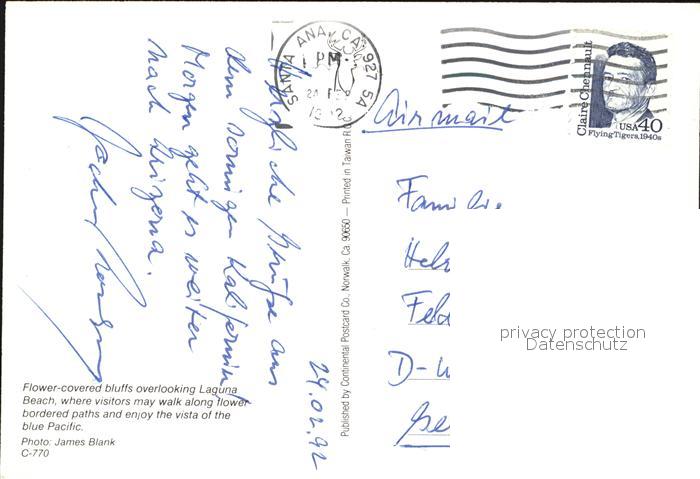 24.02.92
Herzliche Grüße aus
dem sonnigen Kalifornien!
Morgen geht es weiter
nach Arizona.
Flower-covered bluffs overlooking Laguna
Beach, where visitors may walk along flower
bordered paths and enjoy the vista of the
blue Pacific.
Photo: James Blank
C-770
Published by Continental Postcard Co., Norwalk, Ca. 90650 — Printed in Taiwan R
SANTA ANA, CA 927 54
PM
24
Claire Chennault
USA 40
Flying Tigers, 1940s
Air mail
Fam
D-
privacy protection
Datenschutz